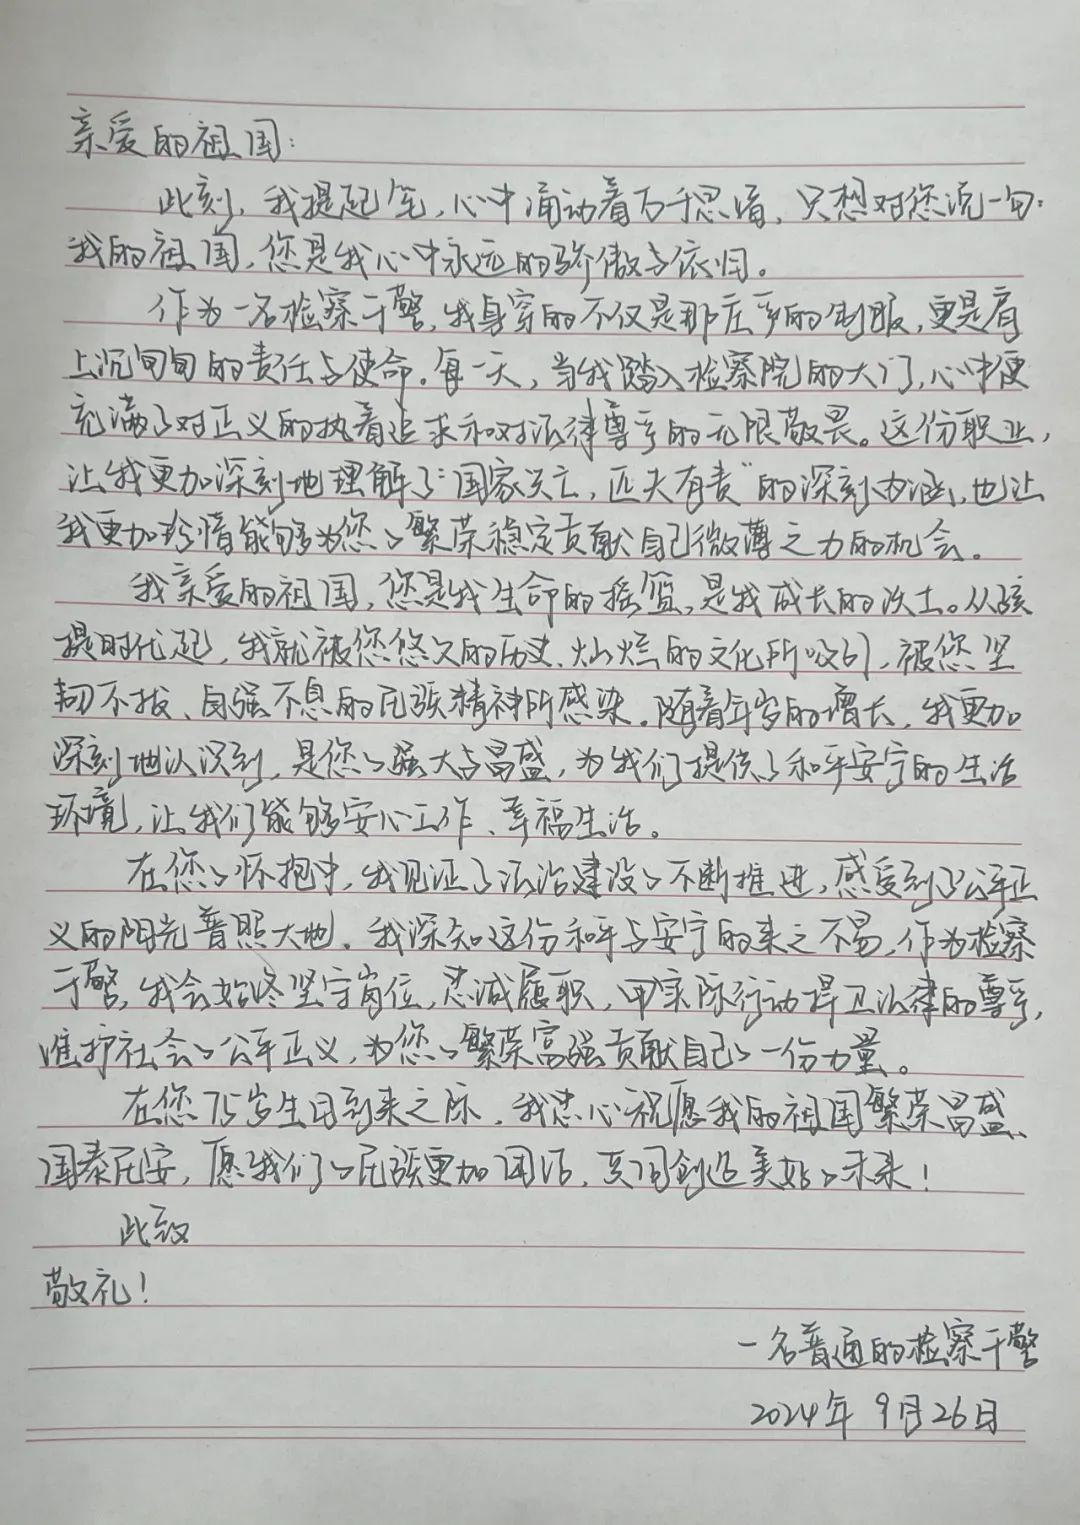 亲爱的祖国:
此刻,我提起笔,心中涌动着万千思绪,只想对您说一句:
我的祖国,您是我心中永远的骄傲与依归。
作为一名检察干警,我身穿的不仅是那庄严的制服,更是肩
上沉甸甸的责任与使命。每一天,当我踏入检察院的大门,心中便
充满了对正义的执着追求和对法律尊严的无限敬畏。这份职业,
让我更加深刻地理解了“国家兴亡,匹夫有责”的深刻内涵,也让
我更加珍惜能够为您的繁荣稳定贡献自己微薄之力的机会。
我亲爱的祖国,您是我生命的摇篮,是我成长的沃土。从孩
提时代起,我就被您悠久的历史、灿烂的文化所吸引,被您坚
韧不拔、自强不息的民族精神所感染。随着年岁的增长,我更加
深刻地认识到,是您的强大与昌盛,为我们提供了和平安宁的生活
环境,让我们能够安心工作、幸福生活。
在您的怀抱中,我见证了法治建设的不断推进,感受到了公平正
义的阳光普照大地。我深知这份和平与安宁的来之不易,作为检察
干警,我会始终坚守岗位,忠诚履职,用实际行动捍卫法律的尊严,
维护社会的公平正义,为您的繁荣富强贡献自己的一份力量。
在您75岁生日到来之际,我衷心祝愿我的祖国繁荣昌盛、
国泰民安,愿我们的民族更加团结,共同创造美好的未来!
此致
敬礼!
一名普通的检察干警
2024年9月26日